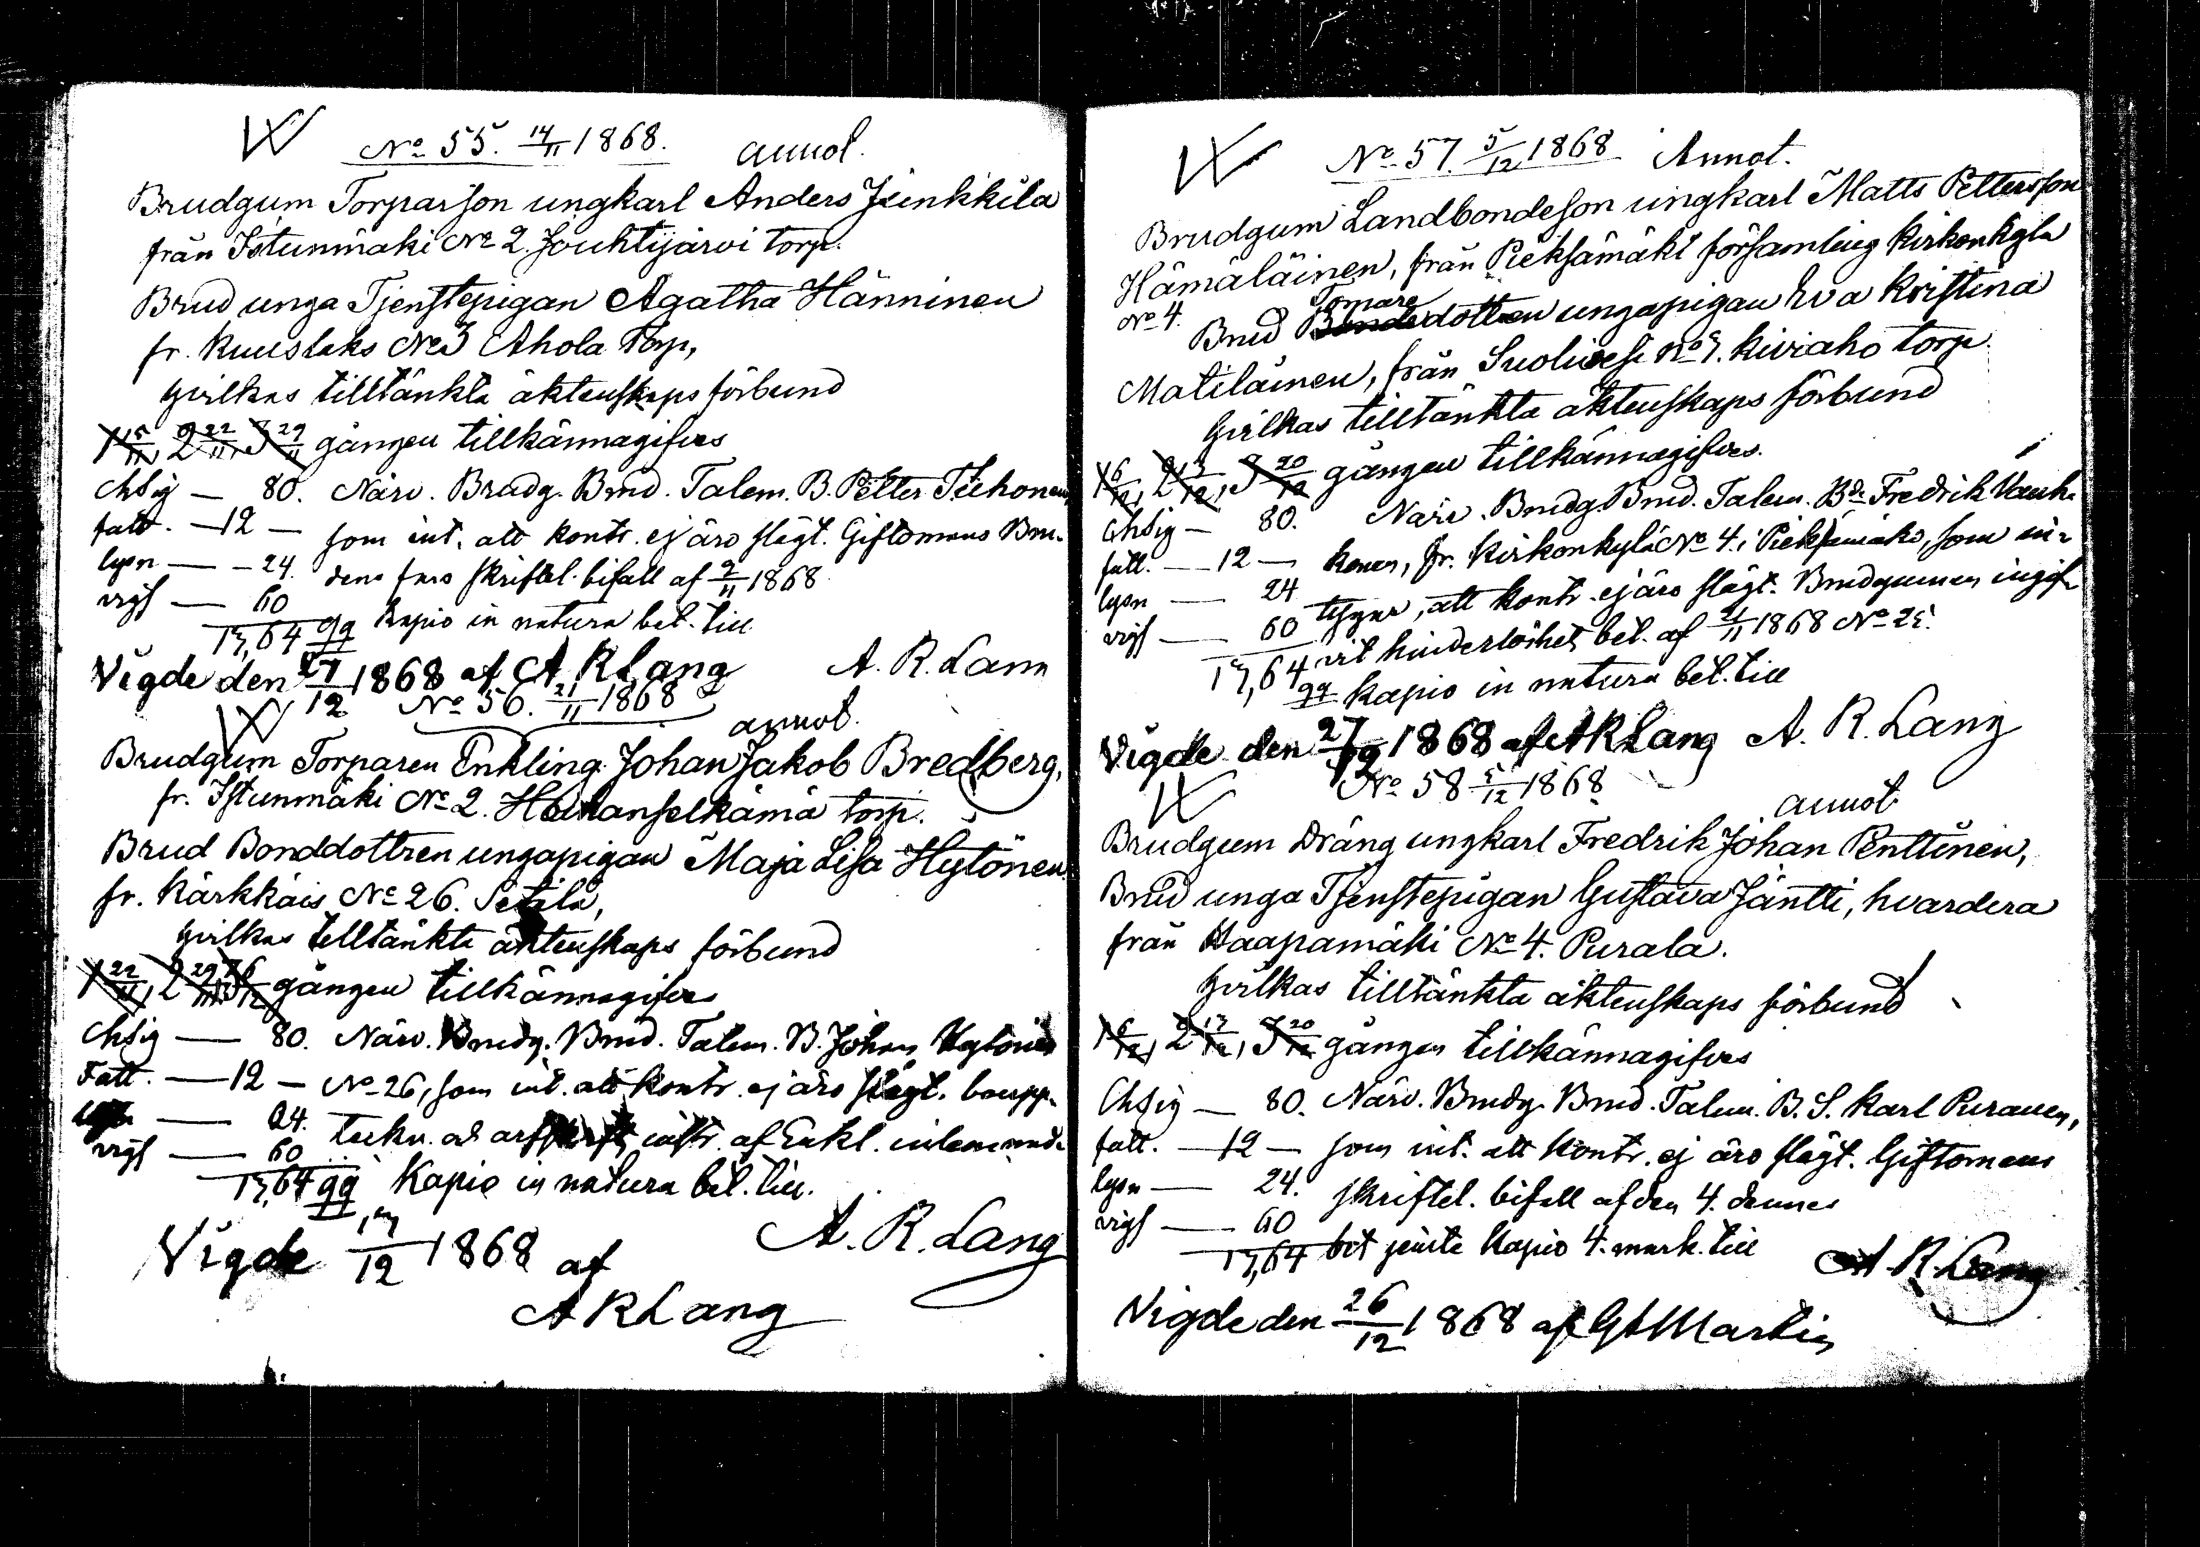 No 55. 14/11 1868. annot.
Brudgum Torparson ungkarl Anders Jünkkilä
från Istunmäki No 2. Jouhtijärvi torp.
Brud unga Tjenstepigan Agatha Hänninen
fr. Kuuslaks No 3 Ahola Torp,
hvilkas tilltänkta äktenskaps förbund
1 15/11, 2 22/11, 3 29/11 gången tillkännagifves
80. Närv. Brudg. Brud. Talem. B. Petter Tiihonen,
fatt. — 12 — som int. att kontr. ej äro slägt. Giftomans Bru-
lysn — 24. dens fars skriftel. bifall af 9/11 1868
vigs — 60 Kapio in natura bet. till
1,64
Vigde den 27/12 1868 af A R Lang A. R. Lang
No 56. 21/11 1868 annot.
Brudgum Torparen Enkling Johan Jakob Bredberg,
fr. Istunmäki No 2. torp.
Brud Bonddottren ungapigan Maja Lisa Hytönen
fr. Kärkkäis No 26. Setälä,
hvilkas tilltänkta äktenskaps förbund
1 22/11, 2 29/11, 3 6/12 gången tillkännagifves
80. Närv. Brudg. Brud. Talem. B. Johan Hytönen
Fatt. — 12 — No 26, som int. att kontr. ej äro slägt. boupp-
24. af Enkl.
vigs — 60
1,64 Kapio in natura bet. till.
A. R. Lang
Vigde 17/12 1868 af
A R Lang
No 57. 5/12 1868 Annot.
Brudgum Landbondeson ungkarl Matts Pettersson
Hämäläinen, från Pieksämäki församling Kirkonkylä
No 4. Brud Torpare dottren ungapigan Eva Kristina
Matilainen, från Suolivesi No 5. Kiviaho torp.
hvilkas tilltänkta äktenskaps förbund
1 6/12, 2 13/12, 3 20/12 gången tillkännagifves.
80. Närv. Brudg. Brud. Talem. Bde Fredrik Vauh-
fatt. — 12 — konen, fr. Kirkonkylä No 4. i Pieksämäki, som in-
lysn — 24 tygar, att kontr. ej äro slägt. Brudgumen ingif-
vigs — 60 vit hinderlöshets bet. af 21/11 1868 No 25.
1,64 Kapio in natura bet. till
Vigde den 27/12 1868 af A R Lang A. R. Lang
No 58 5/12 1868 annot
Brudgum Dräng ungkarl Fredrik Johan Penttinen,
Brud unga Tjenstepigan Gustava Jäntti, hvardera
från Haapamäki No 4. Purala.
hvilkas tilltänkta äktenskaps förbund
1 6/12, 2 13/12, 3 20/12 gången tillkännagifves
80. Närv. Brudg. Brud. Talem. B. S. Karl Puranen,
fatt. — 12 — som int. att kontr. ej äro slägt. Giftomans
lysn — 24. skriftel. bifall af den 4. dennes
vigs — 60
1,64 Kapio 4. mark. till
A. R. Lang
Vigde den 26/12 1868 af Martin